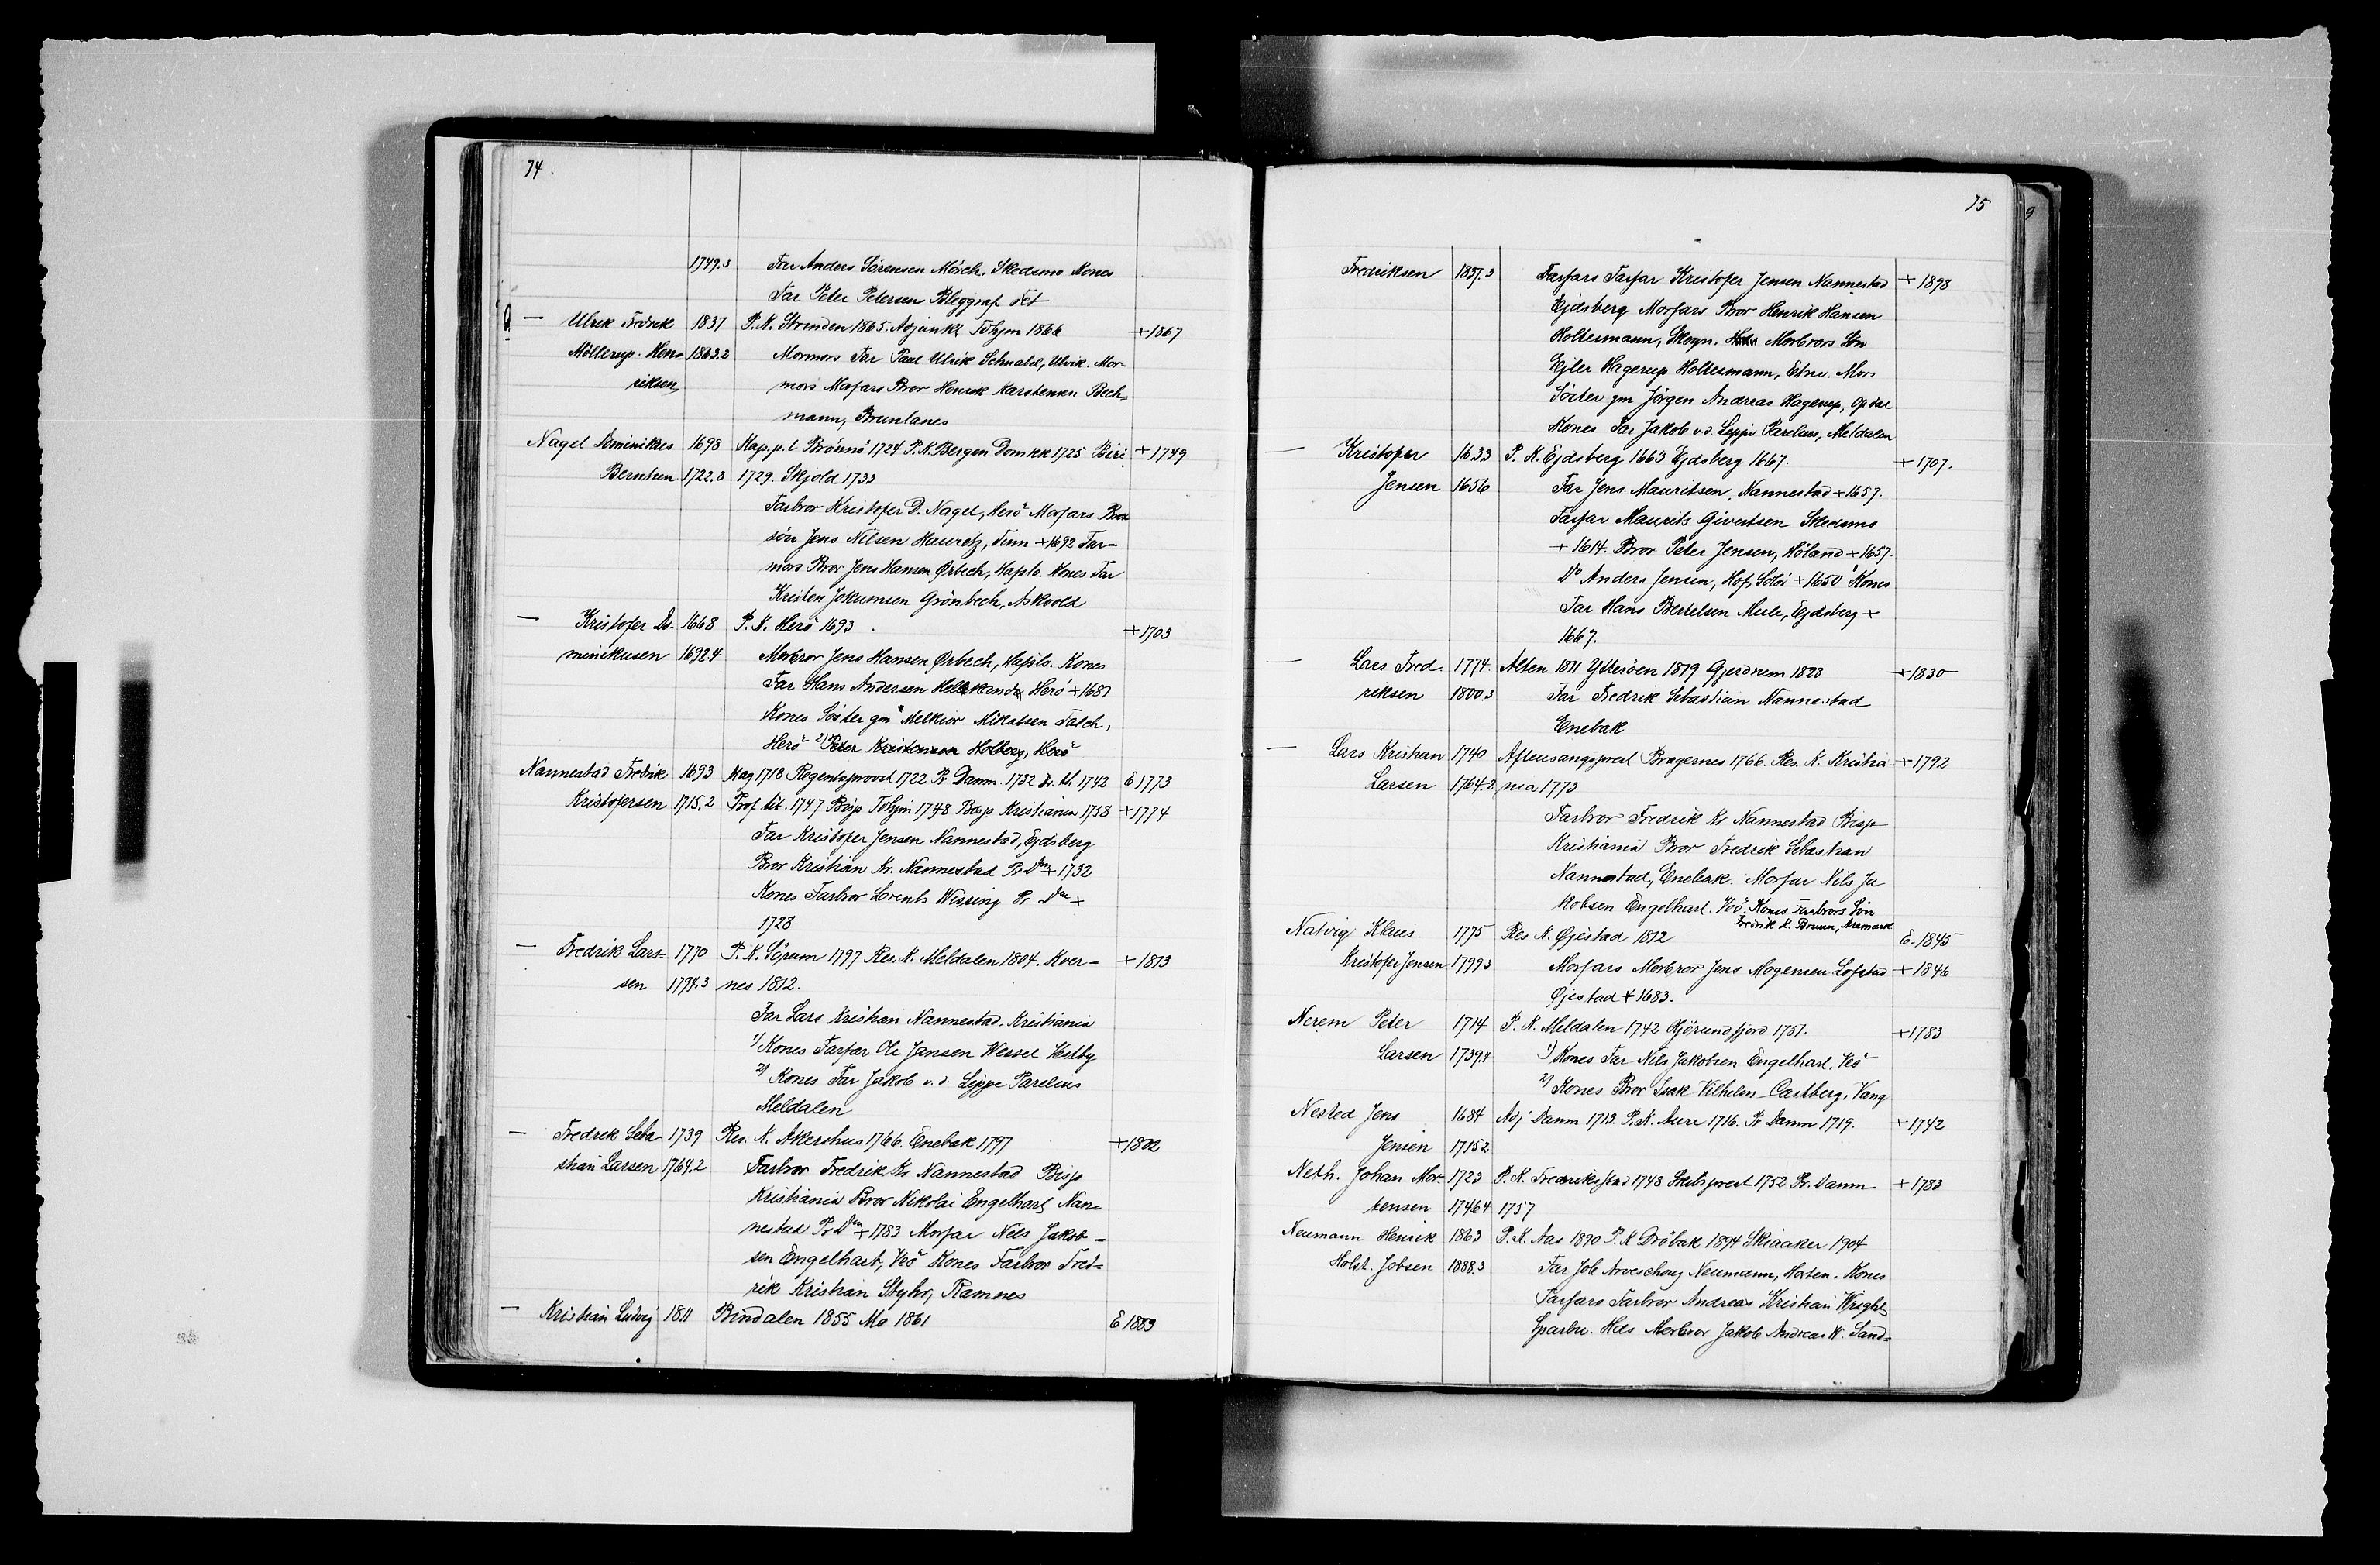 74.
1749.3 Far Anders Sörensen Mörch. Skedsmo Kones
Far Peter Petersen Bleggraf Fet
— Ulrik Fredrik 1837 P.K. Strinden 1865. Adjunkt Tohjm 1866 +1867
Möllerup. Hen- 1863.2 Mormors Far Paul Ulrik Schnabel, Ulvik. Mor-
riksen mors Morfars Bror Henrik Karstensen Bech-
mann, Brunlanes
Nagel Dominikus 1698 Kap. p. l. Brönnö 1724 P.K. Bergen Domkk 1725 Biri +1749
Berntsen 1722.3 1729. Skjold 1733
Farbror Kristofer D. Nagel, Herö Morfars Bror
sön Jens Nilsen Hauretz, Tinn +1692 Far-
mors Bror Jens Hansen Ørbech, Hapslo. Kones Far
Kristen Jokumsen Grönbech, Askvold
— Kristofer Do- 1668 P.K. Herö 1693. +1703
minikusen 1692.4 Morbror Jens Hansen Ørbech, Hapslo. Kones
Far Hans Andersen Herö +1687
Kones Söster gm 1) Melkior Mikkelsen Falch,
Herö 2) Peter Kristensen Holberg, Herö
Nannestad Fredrik 1693 Mag 1718 Regentsprovst 1722 Pr Danm. 1732 Dr. th. 1742 E 1773
Kristofersen 1715.2 Prof. tit. 1747 Bisp Tohjm 1748 Bisp Kristiania 1758 +1774
Far Kristofer Jensen Nannestad, Ejdsberg
Bror Kristian Kr. Nannestad Pr Dm +1732
Kones Farbror Lorents Wissing Pr Dm +
1728
— Fredrik Lars- 1770 P.K. Sörum 1797 Res. K. Meldalen 1804. Kver- +1813
sen 1794.3 nes 1812.
Far Lars Kristian Nannestad. Kristiania
1) Kones Farfar Ole Jansen Wessel Vestby
2) Kones Far Jakob v. d. Lippe Parelius
Meldalen
— Fredrik Seba 1739 Res. K. Akershus 1766. Enebak 1797 +1802
stian Larsen 1764.2 Farbror Fredrik Kr Nannestad Bisp
Kristiania Bror Nikolai Engelhart Nan-
nestad Pr Dm +1783 Morfar Nils Jakob-
sen Engelhart, Veö Kones Farbror Fred-
rik Kristian Styhr, Ramnes
— Kristian Ludvig 1811 Bindalen 1855 Mo 1861 E 1883
75
Fredriksen 1837.3 Farfars Farfar Kristofer Jensen Nannestad +1898
Ejdsberg Morfars Bror Henrik Hansen
Holtermann, Skogn. Morbrors Sön
Ejler Hagerup Holtermann, Etne. Mors
Söster gm Jörgen Andreas Hagerup, Opdal
Kones Far Jakob v.d. Lippe Parelius, Meldalen
— Kristofer 1633 P.K. Ejdsberg 1663 Ejdsberg 1667. +1707.
Jensen 1656 Far Jens Mauritsen, Nannestad +1657.
Farfar Maurits Givertsen Skedsmo
+1614. Bror Peter Jensen, Höland +1657.
Do Anders Jensen, Hof, Solör +1650 Kones
Far Hans Bertelsen Mule, Ejdsberg +
1667.
— Lars Fred 1774. Alten 1811 Ytteröen 1819 Gjerdrum 1823 +1830
riksen 1800.3 Far Fredrik Sebastian Nannestad
Enebak
— Lars Kristian 1740 Aftensangsprest Bragernes 1766. Res. K. Kristia- +1792
Larsen 1764.2 nia 1773
Farbror Fredrik Kr Nannestad Bisp
Kristiania Bror Fredrik Sebastian
Nannestad, Enebak. Morfar Nils Ja
kobsen Engelhart. Veö. Kones Farbrors Sön
Fredrik K. Bruun, Aremark
Natvig Klaus 1775 Res K. Øjestad 1812 E. 1845
Kristofer Jensen 1799.3 Morfars Morbror Jens Mogensen Lofstad +1846
Øjestad +1683.
Nerem Peter 1714 P.K. Meldalen 1742 Hjörundfjord 1751. +1783
Larsen 1739.4 1) Kones Far Nils Jakobsen Engelhart. Veö
2) Kones Bror Isak Vilhelm Castberg, Vang
Nested Jens 1684 Adj Danm 1713. P.K. Aure 1716. Pr Danm 1719. +1742
Jensen 1715.2
Neth. Johan Mor- 1723 P.K. Fredriksstad 1748 Skibsprest 1752 Pr. Danm +1783
tensen 1746.4 1757
Neumann Henrik 1863 P.K. Aas 1890 P.K Dröbak 1894 Skiaaker 1904
Holst. Jobsen 1888.3 Far Job Arveschoug Neumann, Horten. Kones
Farfars Farbror Andreas Kristian Wright
Sparbu. Hds Morbror Jakob Andreas W. Sand-